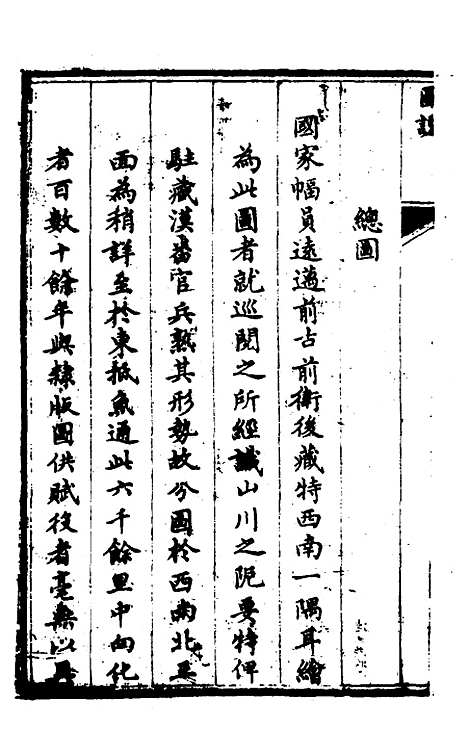 圖說
總圖
國家幅員遠邁前古前衛後藏特西南一隅耳繪
為此圖者就巡閱之所經誌山川之阨要特俾
駐藏漢番官兵熟其形勢故分圖於西南北三
面為稍詳至於東抵魚通此六千餘里中向化
者百數十餘年與隸版圖供賦役者毫無以異